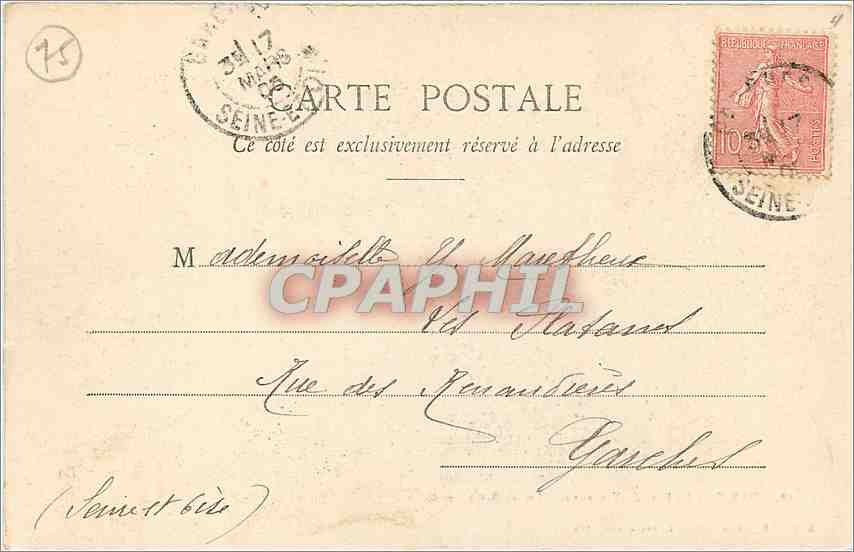 75
RÉPUBLIQUE FRANÇAISE
10
POSTES
3E 17
MARS
05
SEINE-ET-OISE
3E 17
SEINE
CARTE POSTALE
Ce côté est exclusivement réservé à l'adresse
Mademoiselle Y. Maretheux
CPAPHIL
Les Platanes
Rue des Renaudières
Garches
(Seine et Oise)